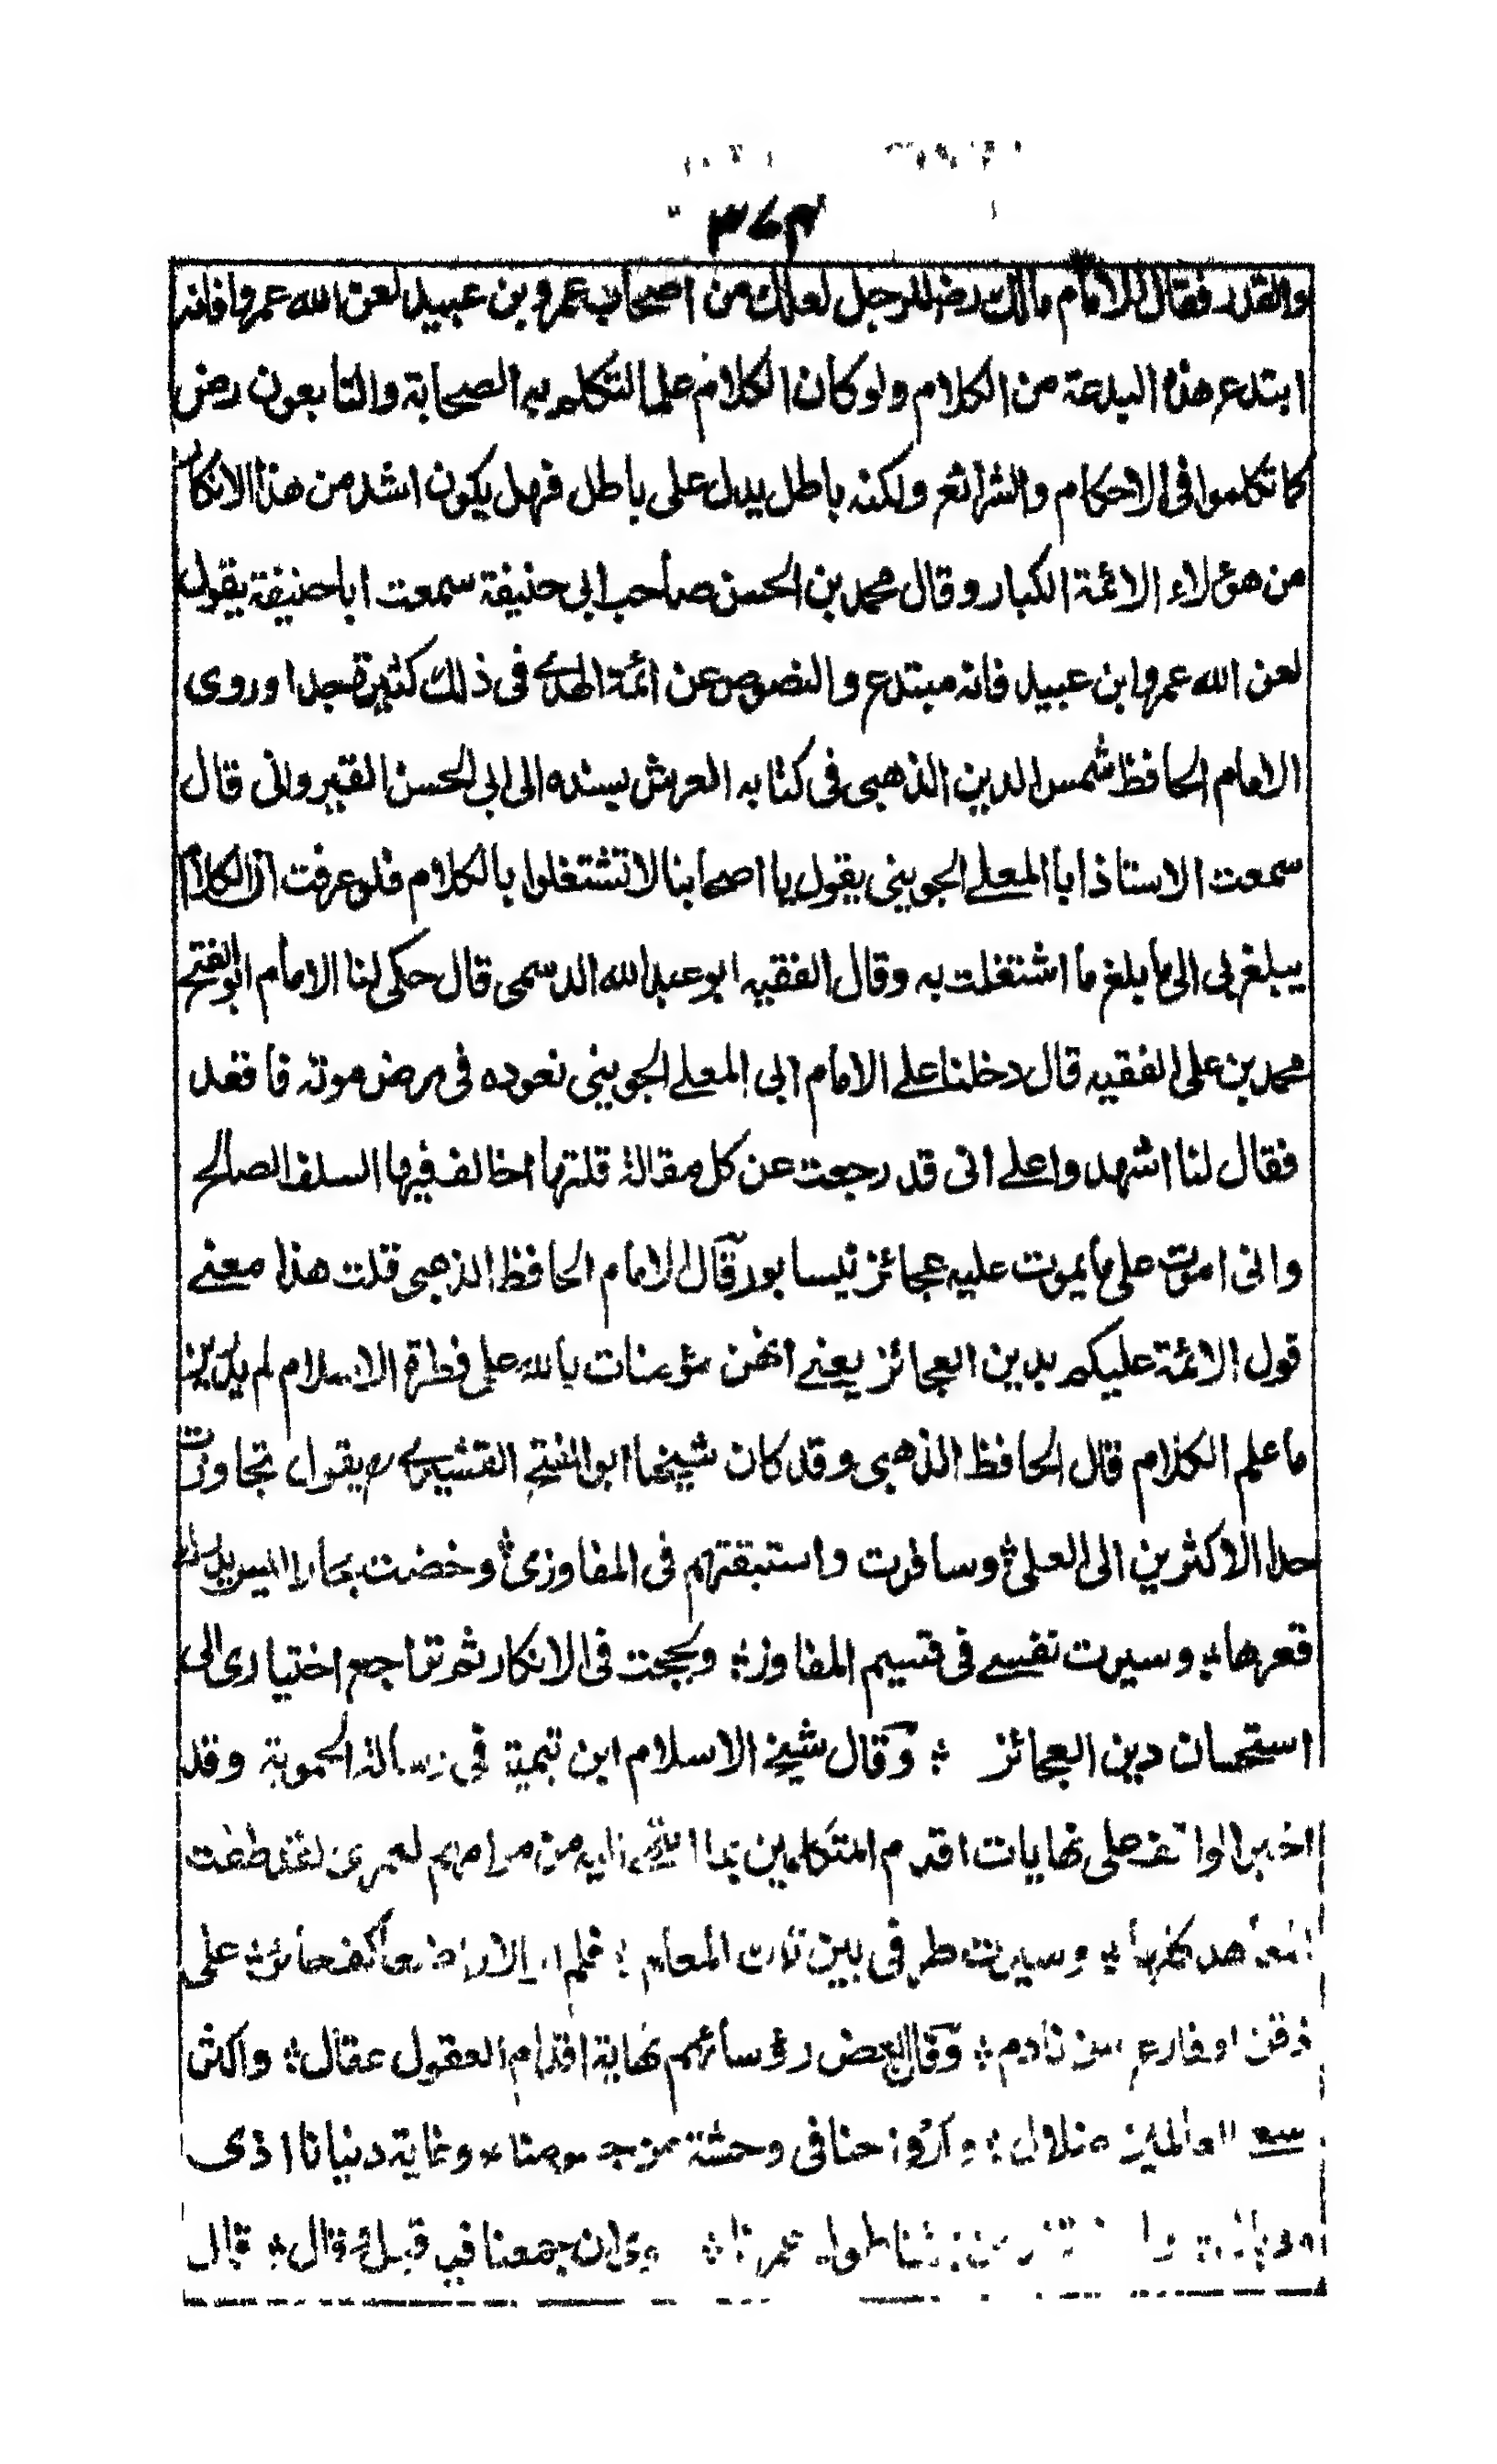 ٣٧٤
والقدر فقال له الامام مالك رضـ للرجل لعلك من اصحاب عمرو بن عبيد لعن الله عمروا فانه
ابتدع هذه البدعة من الكلام ولو كان الكلام علما لتكلم به الصحابة والتابعون رضـ
كما تكلموا فى الاحكام والشرائع ولكنه باطل يدل على باطل فهل يكون اشد من هذا الانكار
من هؤلاء الائمة الكبار وقال محمد بن الحسن صاحب ابى حنيفة سمعت ابا حنيفة يقول
لعن الله عمروا بن عبيد فانه مبتدع والنصوص عن ائمة الهدى فى ذلك كثيرة جدا وروى
الامام الحافظ شمس الدين الذهبى فى كتابه العرش بسنده الى ابى الحسن القيروانى قال
سمعت الاستاذ ابا المعلى الجوينى يقول يا اصحابنا لا تشتغلوا بالكلام فلو عرفت ان الكلام
يبلغ بى الى ما بلغ ما اشتغلت به وقال الفقيه ابو عبد الله الدسمى قال حكى لنا الامام ابو الفتح
محمد بن على الفقيه قال دخلنا على الامام ابى المعلى الجوينى نعوده فى مرض موته فاقعد
فقال لنا اشهدوا على انى قد رجعت عن كل مقالة قلتها اخالف فيها السلف الصالح
وانى اموت على ما يموت عليه عجائز نيسابور قال الامام الحافظ الذهبى قلت هذا معنى
قول الائمة عليكم بدين العجائز يعنى انهن مؤمنات بالله على فطرة الاسلام لم يدرين
ما علم الكلام قال الحافظ الذهبى وقد كان شيخنا ابو الفتح القشيرى رح يقول تجاوزت
حد الاكثرين الى العلى وسافرت واستبقتهم فى المفاوزى وخضت بحارا ليس يدرك
قعرها وسيرت نفسى فى قسيم المفاوز ولججت فى الافكار ثم تراجع اختيارى الى
استحسان دين العجائز وقال شيخ الاسلام ابن تيمية فى رسالة الحموية وقد
اخبر الواقف على نهايات اقدم المتكلمين بما انتهى اليه من مرامهم لعمرى لقد طفت
المعاهد كلها وسيرت طرفى بين تلك المعالم فلم ار الا واضعا كف حائر على
ذقن او قارع سن نادم وقال بعض رؤسائهم نهاية اقدام العقول عقال واكثر
سعى العالمين ضلال وارواحنا فى وحشة من جسومنا وغاية دنيانا اذى
طول عمرنا سوى ان جمعنا فيه قيل وقال قال